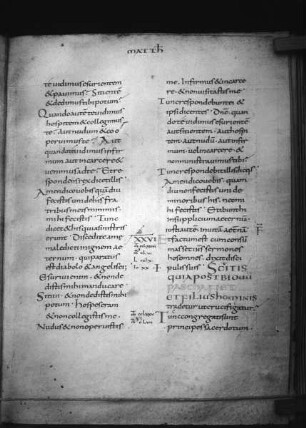 MATTH
te uidimus esurientem
& pauimus Sitiente
& dedimus tibi potum
Quando autē te uidimus
hospitem & collegimus
te Aut nudum & coo
peruimus te Aut
quando te uidimus infir
mum aut in carcere &
uenimus ad te Et res
pondens rex dicet illis
Amen dico uobis quādiu
fecistis uni de his fra
tribus meis minimis
mihi fecistis Tunc
dicet & his qui a sinistris
erunt Discedite a me
maledicti in ignem ae
ternum qui paratus
est diabolo & angelis eius
Esuriui enim & non de
distis mihi manducare
Sitiui & non dedistis mihi
potum hospes eram
& non collegistis me
Nudus & non operuistis
me Infirmus & in carce
re & non uisitastis me
Tunc respondebunt ei &
ipsi dicentes Dñe quan
do te uidimus esurientē
aut sitientem aut hospi
tem aut nudū aut infir
mum uel in carcere &
non ministrauimus tibi
Tunc respondebit illis dicens
Amen dico uobis quam
diu non fecistis uni de
minoribus his nec mi
hi fecistis Et ibunt hi
in supplicium aeternū
iusti autē in uitā aeternā
XXVI
Et factum est cum consum
masset ihs sermones
hos omnes dixit disci
pulis suis SCITIS
QUIA POST BIDUU
PASCHA FIET
ET FILIUS HOMINIS
tradetur ut crucifigatur
Tunc congregati sunt
principes sacerdotum